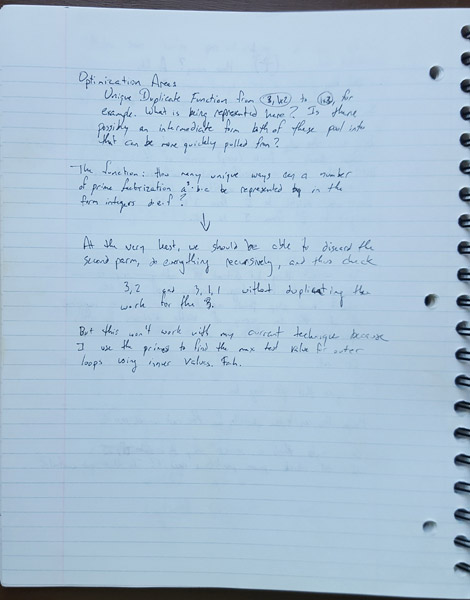 Optimization Areas
Unique Duplicate Function from to for
example. What is being represented here? Is there
possibly an intermediate form both of these pool into
that can be more quickly pulled from?
The function: How many unique ways can a number
of prime factorization be represented in the
form integers d·e·f?
↓
At the very least, we should be able to discard the
second parm, do everything recursively, and thus check
3,2 and 3,1,1 without duplicating the
work for the 3.
But this won't work with my current technique because
I use the primes to find the max test value for outer
loops using inner values.